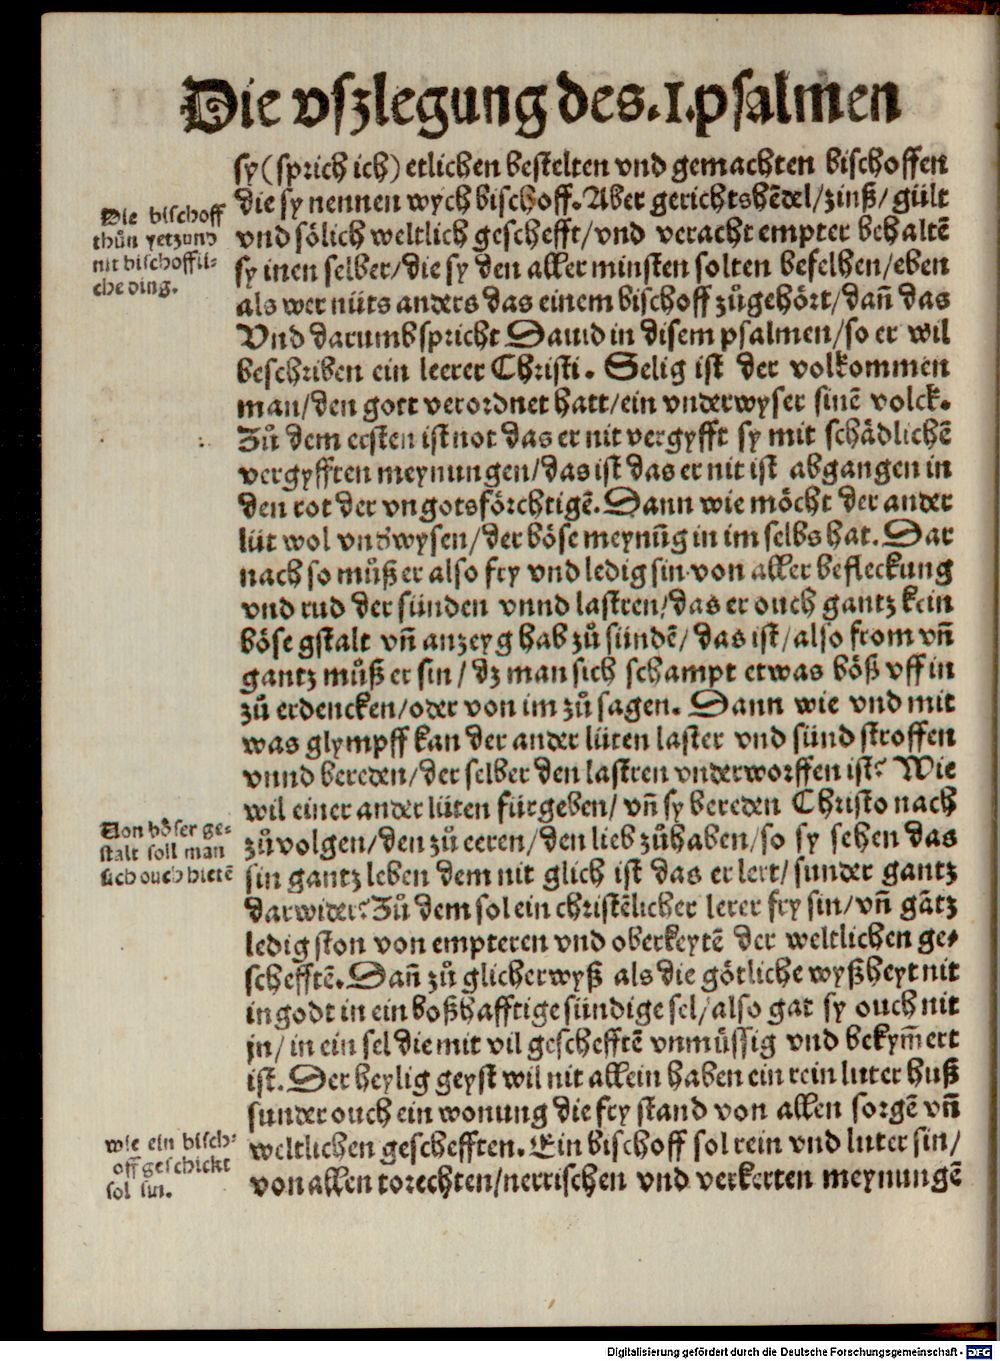 Die vſzlegung des .I. psalmen
sy (sprich ich) etlichen bestelten vnd gemachten bischoffen
die sy nennen wych bischoff. Aber gerichtshēdel / zinß / gült
vnd sölich weltlich geschefft / vnd veracht empter behaltē
sy inen selber / die sy den aller minsten solten befelhen / eben
als wer nüts anders das einem bischoff zůgehört / dañ das
Vnd darumb spricht Dauid in disem psalmen / so er wil
beschriben ein leerer Christi. Selig ist der volkommen
man / den gott verordnet hatt / ein vnderwyser sinē volck.
Zů dem ersten ist not das er nit vergyfft sy mit schädlichē
vergyfften meynungen / das ist das er nit ist abgangen in
den rot der vngotsförchtigē. Dann wie möcht der ander
lüt wol vnd̕wysen / der böse meynūg in im selbs hat. Dar
nach so můß er also fry vnd ledig sin von aller befleckung
vnd rud der sünden vnnd lastren / das er ouch gantz kein
böse gstalt vñ anzeyg hab zů sündē / das ist / also from vñ
gantz můß er sin / dz man sich schampt etwas böß vff in
zů erdencken / oder von im zů sagen. Dann wie vnd mit
was glympff kan der ander lüten laster vnd sünd stroffen
vnnd bereden / der selber den lastren vnderworffen ist? Wie
wil einer ander lüten fürgeben / vñ sy bereden Christo nach
zůvolgen / den zů eeren / den lieb zůhaben / so sy sehen das
sin gantz leben dem nit glich ist das er lert / sunder gantz
darwider? Zů dem sol ein christēlicher lerer fry sin / vñ gātz
ledig ston von empteren vnd oberkeytē der weltlichen ge⸗
schefftē. Dañ zů glicherwyß als die götliche wyßheyt nit
ingodt in ein boßhafftige sündige sel / also gat sy ouch nit
jn / in ein sel die mit vil geschefftē vnmüssig vnd bekym̄ert
ist. Der heylig geyst wil nit allein haben ein rein luter huß
sunder ouch ein wonung die fry stand von allen sorgē vñ
weltlichen geschefften. Ein bischoff sol rein vnd luter sin /
von allen torechten / nerrischen vnd verkerten meynungē
Die bischoff
thůn yetzund
nit bischoffli⸗
che ding.
Von böser ge⸗
stalt soll man
sich ouch hietē
wie ein bisch⸗
off geschickt
sol sin.
Digitalisierung gefördert durch die Deutsche Forschungsgemeinschaft - DFG